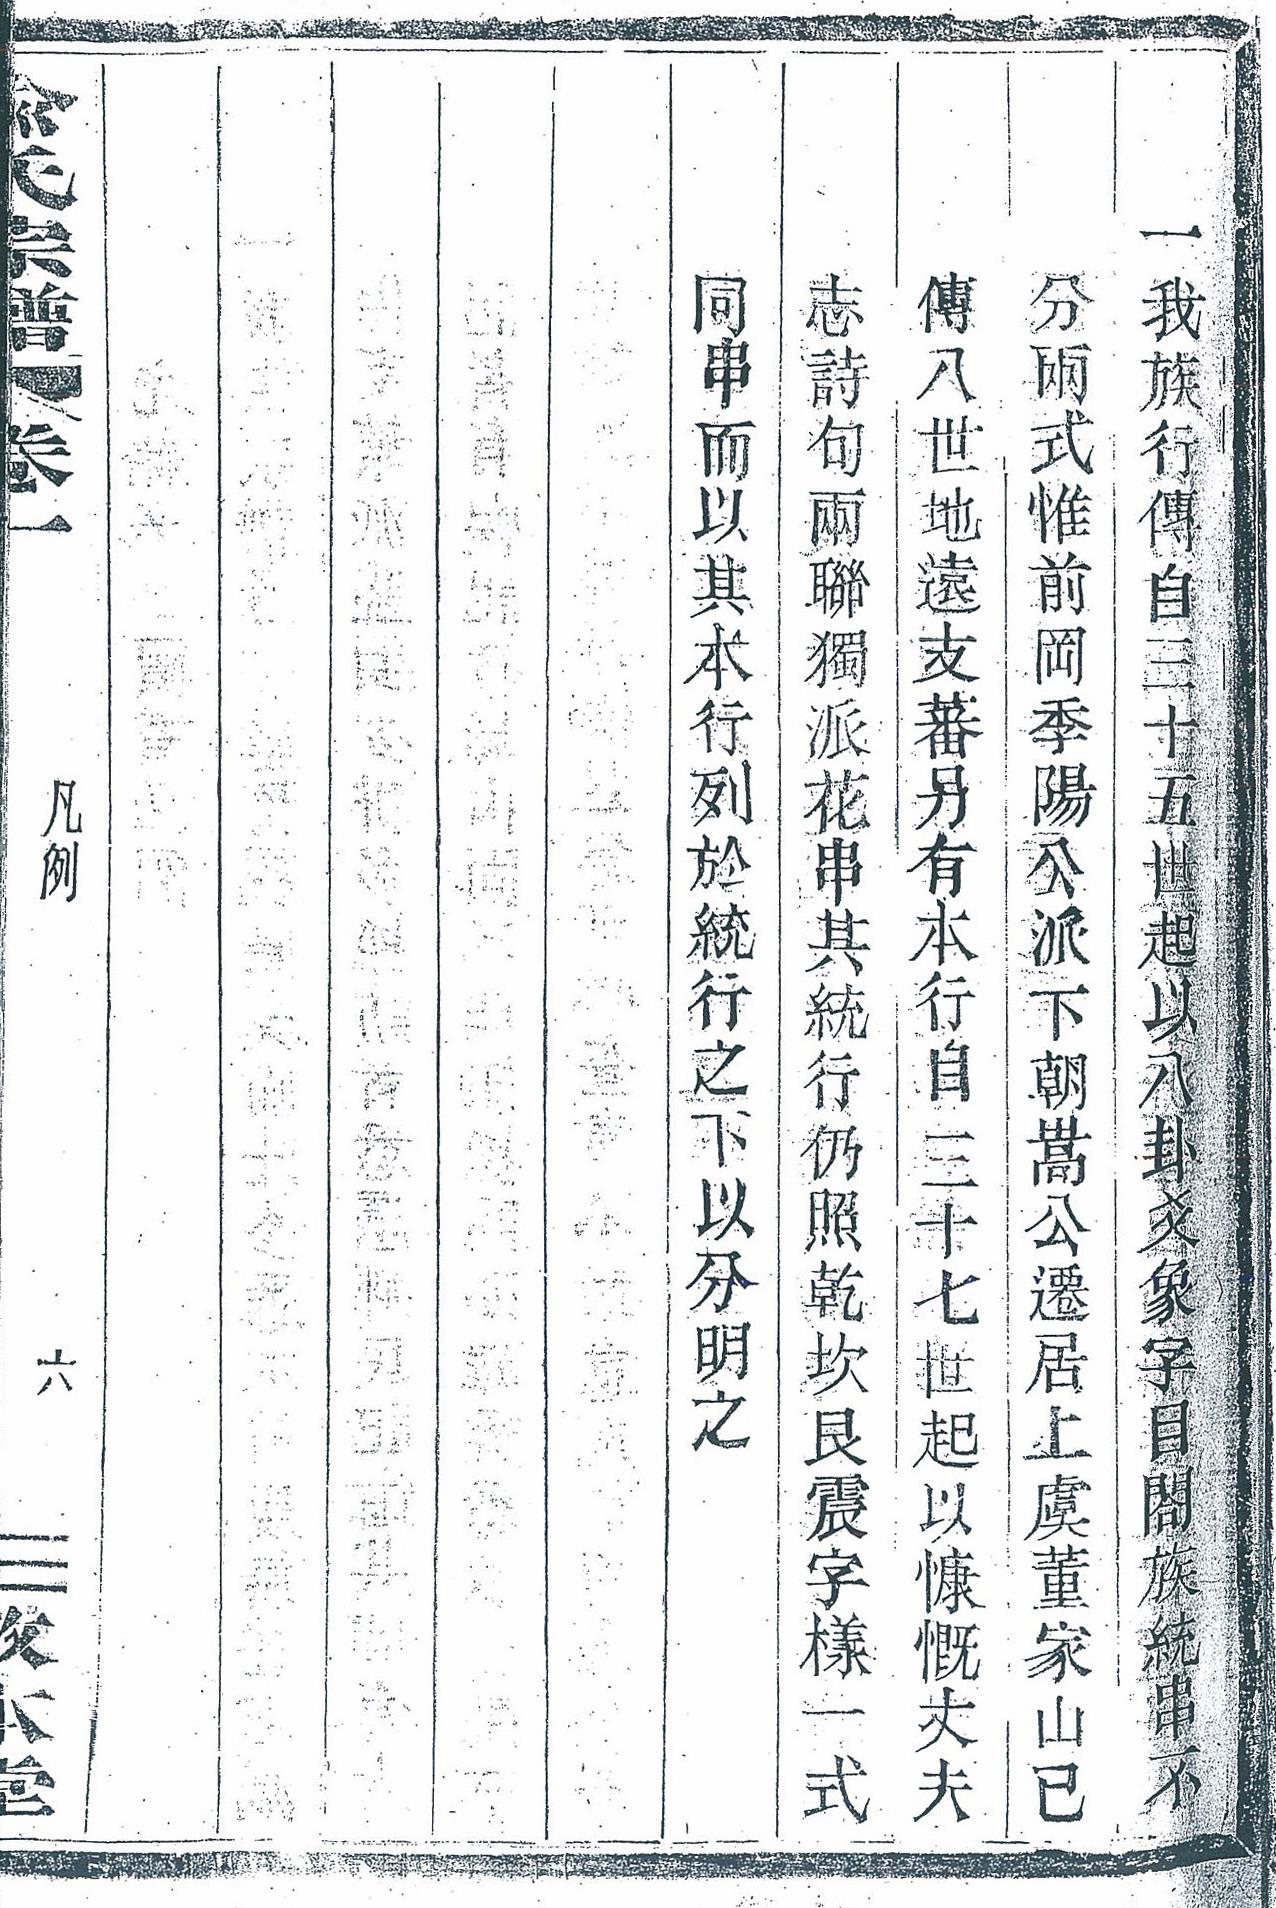 一我族行傳自三十五世起以八卦爻象字目閤族統串不
分兩式惟前岡季陽公派下朝嵩公遷居上虞董家山已
傳八世地遠支蕃另有本行自三十七世起以慷慨丈夫
志詩句兩聯獨派花串其統行仍照乾坎艮震字樣一式
同串而以其本行列於統行之下以分明之
氏宗譜 卷一 凡例 六 敦本堂